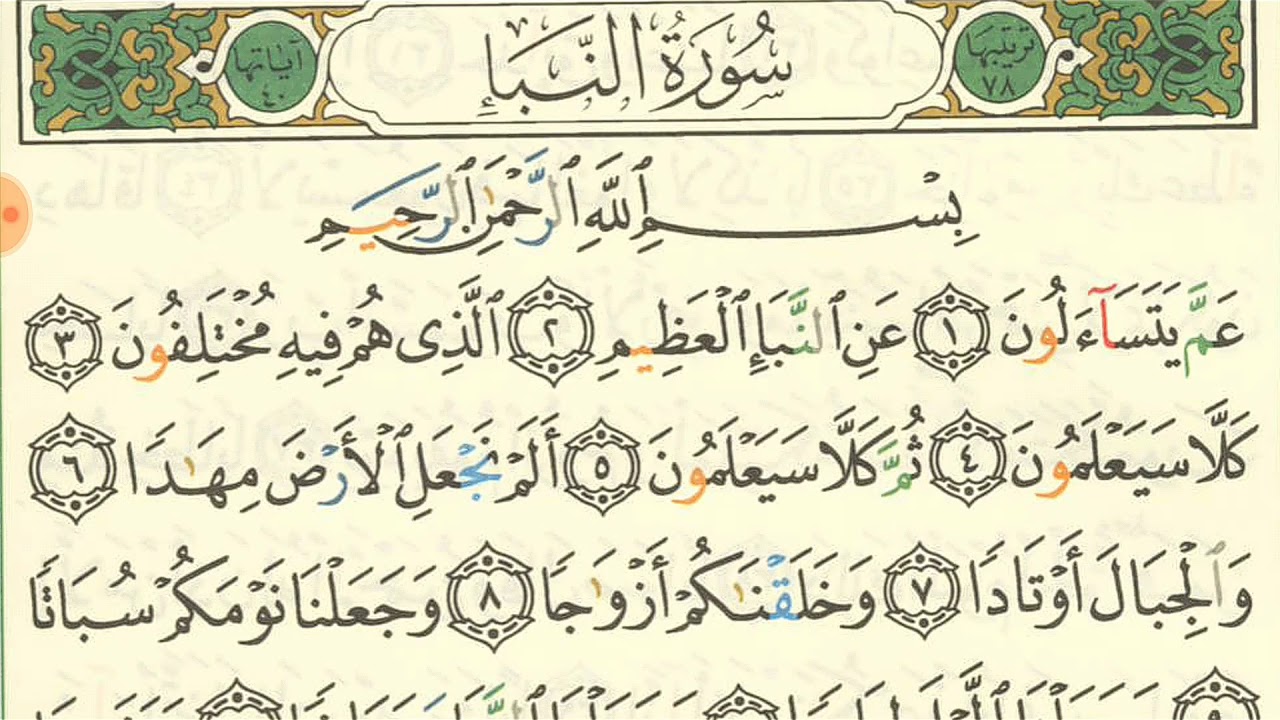 ترتيبها ٧٨
سُورَةُ النَّبَإِ
آياتها ٤٠
بِسْمِ ٱللَّهِ ٱلرَّحْمَٰنِ ٱلرَّحِيمِ
عَمَّ يَتَسَآءَلُونَ ١ عَنِ ٱلنَّبَإِ ٱلْعَظِيمِ ٢ ٱلَّذِى هُمْ فِيهِ مُخْتَلِفُونَ ٣
كَلَّا سَيَعْلَمُونَ ٤ ثُمَّ كَلَّا سَيَعْلَمُونَ ٥ أَلَمْ نَجْعَلِ ٱلْأَرْضَ مِهَٰدًا ٦
وَٱلْجِبَالَ أَوْتَادًا ٧ وَخَلَقْنَٰكُمْ أَزْوَٰجًا ٨ وَجَعَلْنَا نَوْمَكُمْ سُبَاتًا